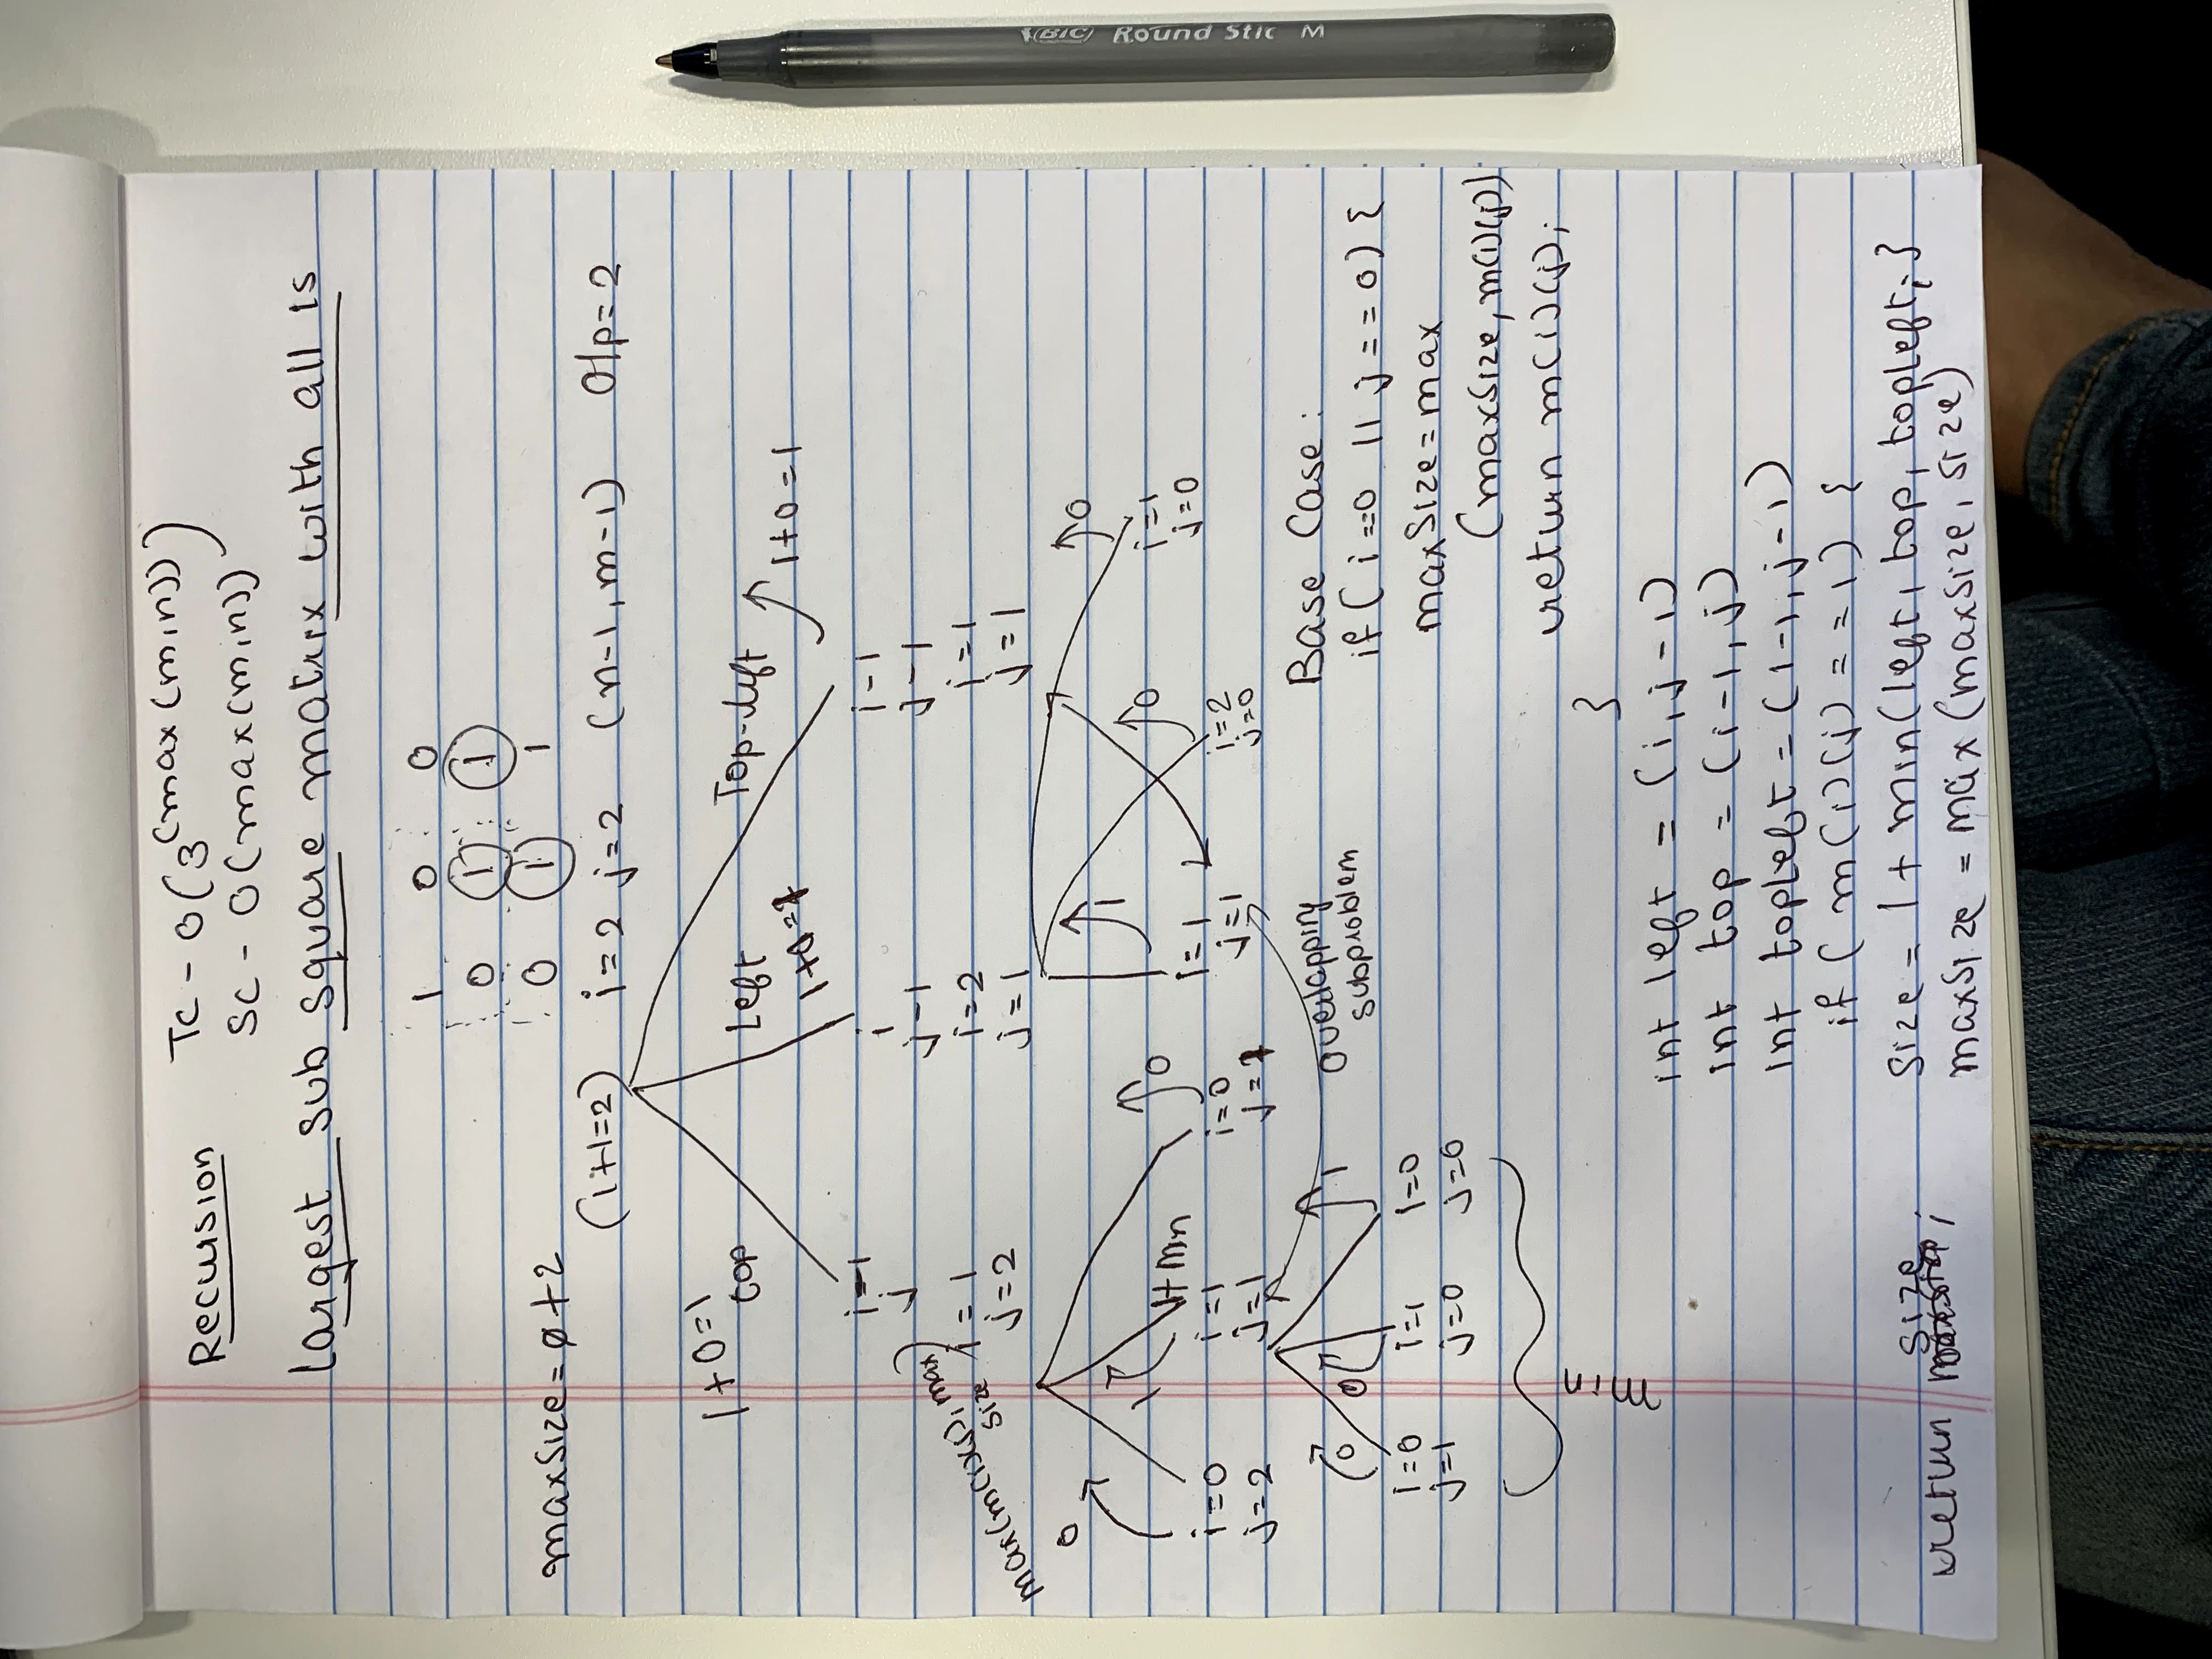 Recursion
TC - O(3^(max(m,n)))
SC - O(max(m,n))
Largest sub square matrix with all 1s
1 0 0
0 1 1
0 1 1
maxSize = 0 + 2
(1+1=2) i=2 j=2 (n-1, m-1) O/p=2
1+0=1
top
Left
1+0=1
Top-left
1+0=1
i-1
j
i
j-1
i-1
j-1
max(m(i)(j), max size)
i=1
j=2
i=2
j=1
i=1
j=1
0
1
1+min
0
1
0
0
i=0
j=2
i=1
j=1
i=0
j=1
i=1
j=1
i=2
j=0
i=1
j=0
0
0
1
overlapping
subproblem
i=0
j=1
i=1
j=0
i=0
j=0
min
Base Case:
if (i==0 || j==0) {
maxSize = max
(maxSize, m(i)(j))
return m(i)(j);
}
int left = (i, j-1)
int top = (i-1, j)
int topLeft = (i-1, j-1)
if (m(i)(j) == 1) {
size = 1 + min(left, top, topLeft; }
maxSize = max (maxSize, size)
return size;
BIC Round Stic M